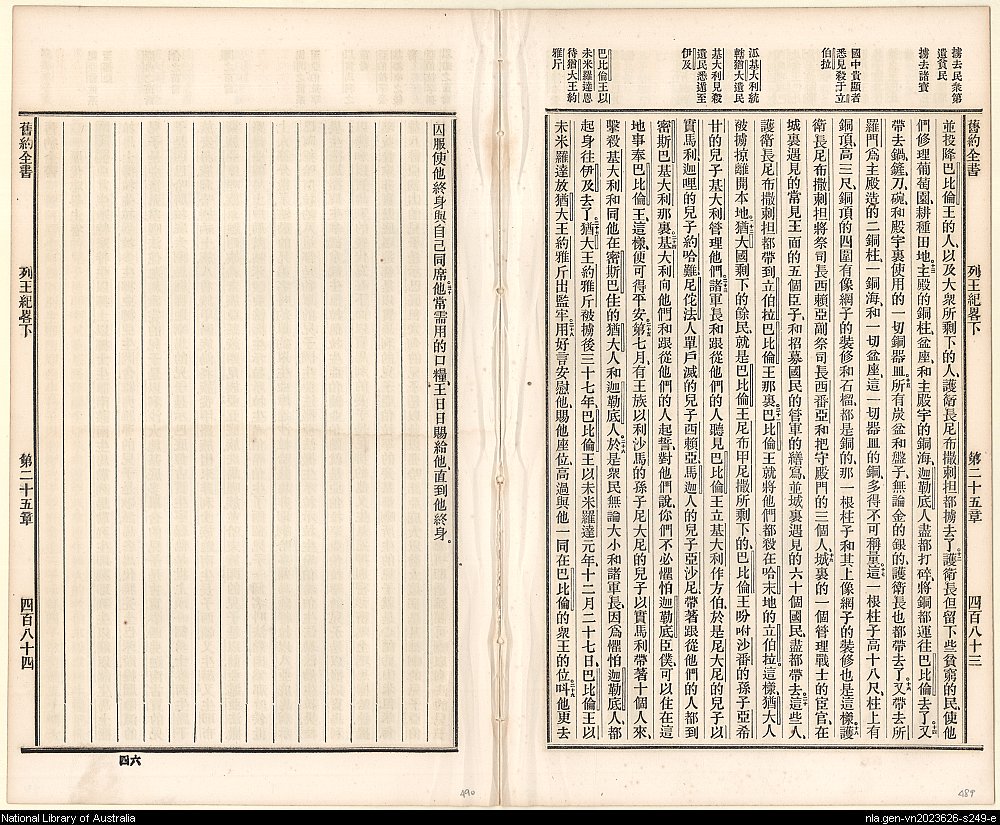 擄去民衆第
遺貧民
擄去諸寶
國中貴顯者
悉見殺于立
伯拉
泒基大利統
轄猶大遺民
基大利見殺
遺民悉遁至
伊及
巴比倫王以
未米羅達恩
待猶大王約
雅斤
舊約全書 列王紀畧下 第二十五章 四百八十三
並投降巴比倫王的人、以及大衆所剩下的人、護衛長尼布撒剌担都擄去了。護衛長但留下些貧窮的民、使他
們修理葡萄園、耕種田地。主殿的銅柱、盆座、和主殿宇的銅海、迦勒底人盡都打碎、將銅都運往巴比倫去了。又
帶去鍋、鏟、刀、碗、和殿宇裏使用的一切銅器皿。所有炭盆和盤子、無論金的銀的、護衛長也都帶去了。又帶去所
羅門爲主殿造的二銅柱、一銅海、和一切盆座、這一切器皿的銅、多得不可稱量。這一根柱子高十八尺、柱上有
銅頂、高三尺、銅頂的四圍有像網子的裝修和石榴、都是銅的、那一根柱子和其上像網子的裝修也是這樣。護
衛長尼布撒剌担將祭司長西賴亞、副祭司長西番亞、和把守殿門的三個人、城裏的一個管理戰士的宦官、在
城裏遇見的常見王面的五個臣子、和招募國民的管軍的繕寫、並城裏遇見的六十個國民、盡都帶去。這些人、
護衛長尼布撒剌担都帶到立伯拉巴比倫王那裏。巴比倫王就將他們都殺在哈末地的立伯拉。這樣、猶大人
被擄掠離開本地。猶大國剩下的餘民、就是巴比倫王尼布甲尼撒所剩下的、巴比倫王吩咐沙番的孫子亞希
甘的兒子基大利管理他們。諸軍長和跟從他們的人、聽見巴比倫王立基大利作方伯、於是尼大尼的兒子以
實馬利、迦哩的兒子約哈難、尼佗法人單戶滅的兒子西賴亞、馬迦人的兒子亞沙尼、帶著跟從他們的人、都到
密斯巴基大利那裏。基大利向他們和跟從他們的人起誓、對他們說、你們不必懼怕迦勒底臣僕、可以住在這
地、事奉巴比倫王、這樣、便可得平安。第七月、有王族以利沙馬的孫子尼大尼的兒子以實馬利、帶著十個人來、
擊殺基大利、和同他在密斯巴住的猶大人和迦勒底人。於是衆民無論大小和諸軍長、因爲懼怕迦勒底人、都
起身往伊及去了。猶大王約雅斤被擄後三十七年、巴比倫王以未米羅達元年、十二月二十七日、巴比倫王以
未米羅達放猶大王約雅斤出監牢。用好言安慰他、賜他座位、高過與他一同在巴比倫的衆王的位。叫他更去
囚服、使他終身與自己同席。他常需用的口糧、王日日賜給他、直到他終身。
舊約全書 列王紀畧下 第二十五章 四百八十四
六四
490
489
National Library of Australia
nla.gen-vn2023626-s249-e